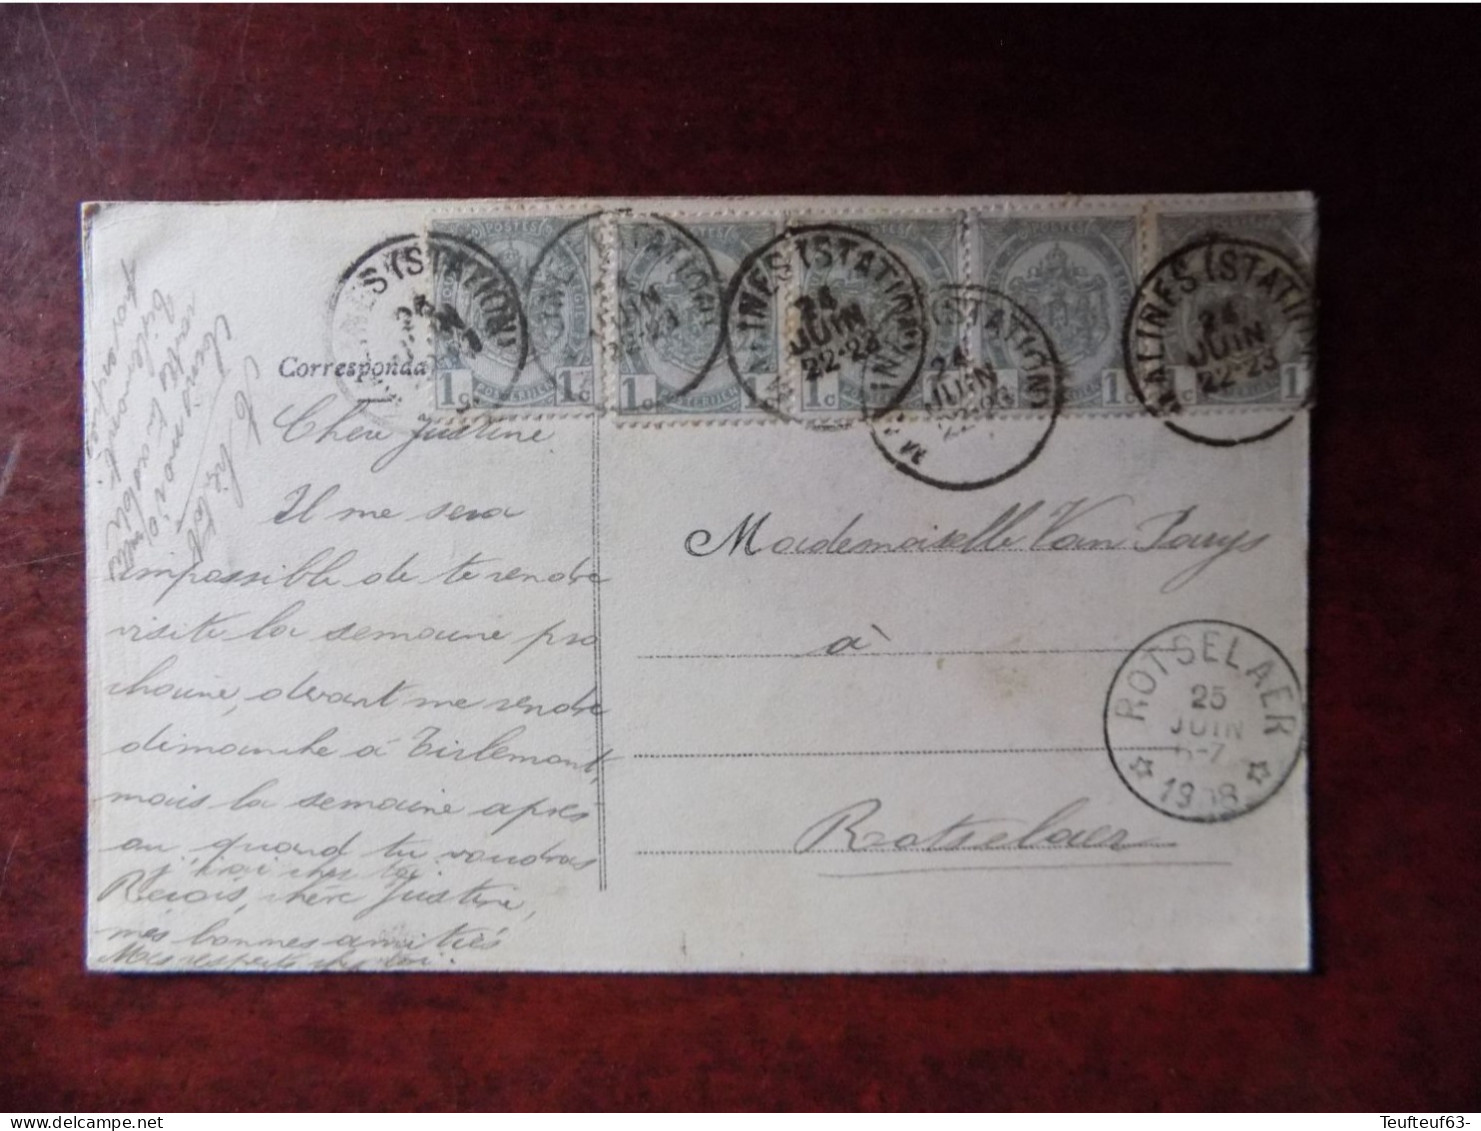 POSTES
1c 1c
1c 1
1c
1c
1c 1
MALINES (STATION)
24
JUIN
22-23
MALINES (STATION)
24
JUIN
22-23
MALINES (STATION)
24
JUIN
22-23
Corresponda
Chère Justine
Il me sera
impossible de te rendre
visite la semaine pro
chaine, devant me rendre
dimanche à Tirlemont,
mais la semaine après
ou quand tu voudras
j'irai chez toi
Reçois, chère Justine,
mes bonnes amitiés
Mes respects chez toi.
Mademoiselle Van Parys
à
Rotselaer
ROTSELAER
25
JUIN
6-7
1908
Teufteuf63-